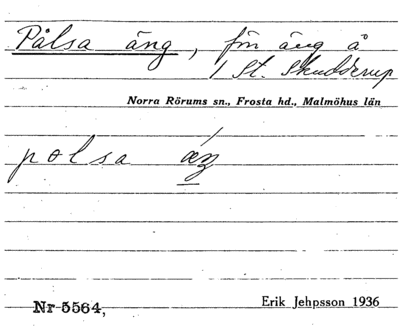 Pålsa äng, för äng å
1 St. Skudderup
Norra Rörums sn., Frosta hd., Malmöhus län
polsa äŋ
Nr 5564,
Erik Jehpsson 1936